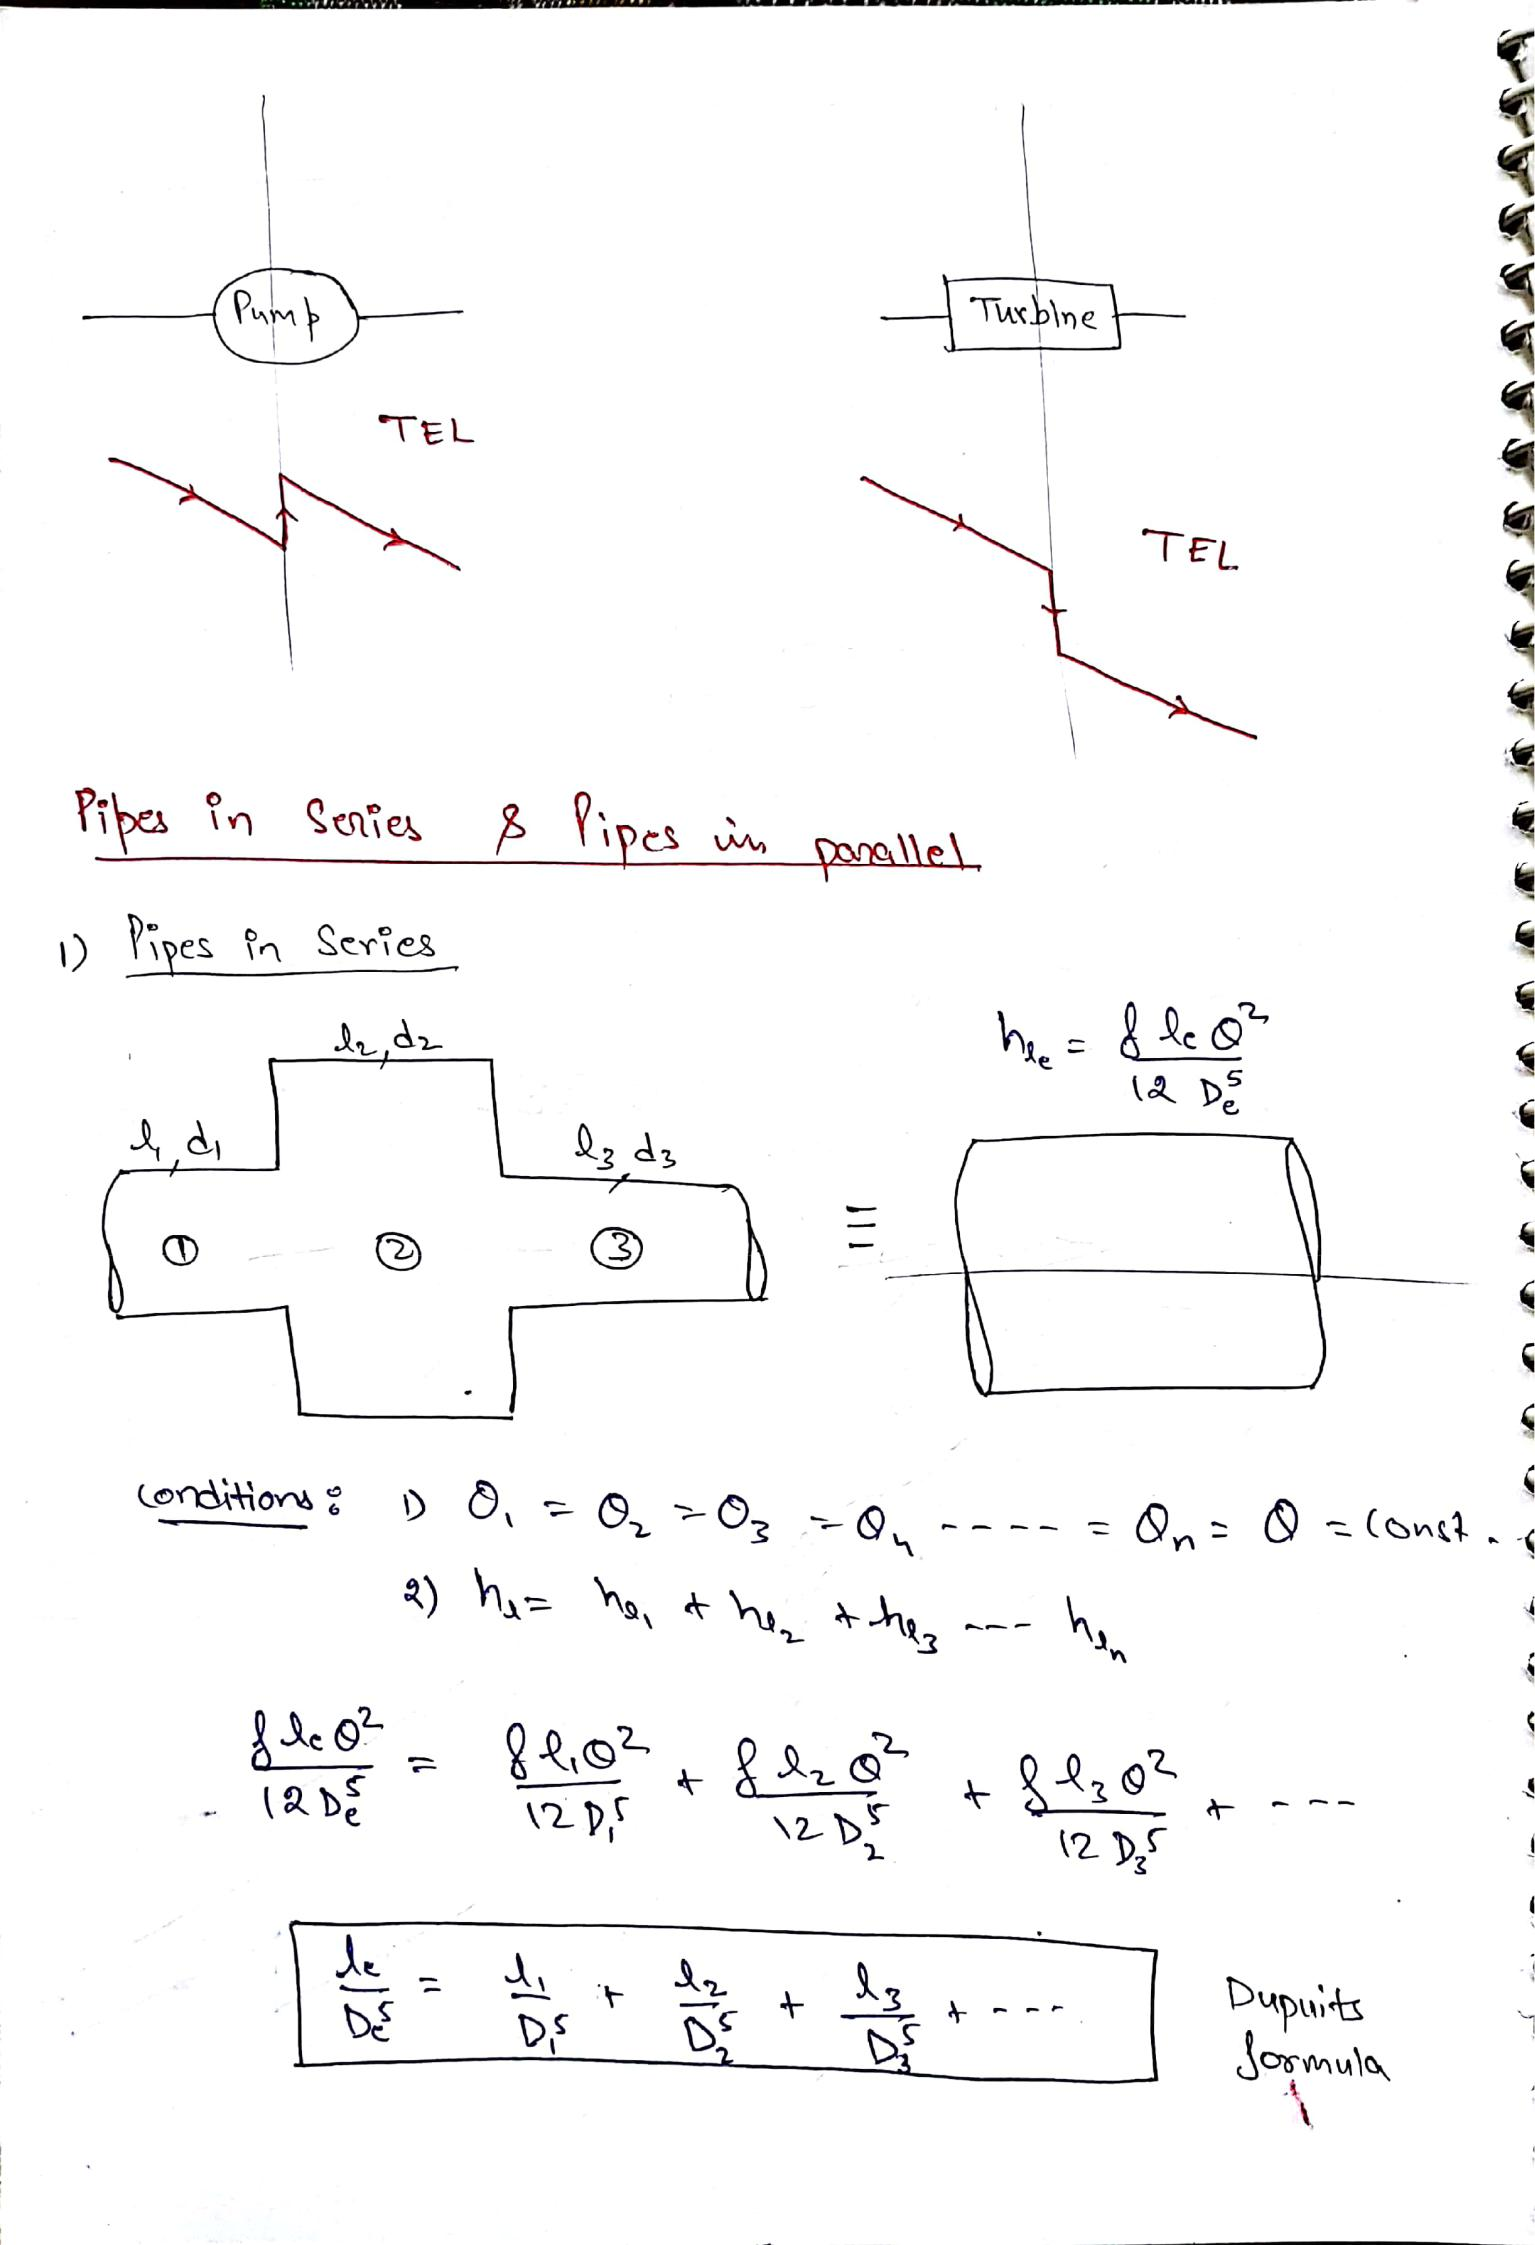 Pump
Turbine
TEL
TEL
Pipes in Series & Pipes in parallel
1) Pipes in Series
l₂, d₂
hₗₑ = f lₑ Q² / 12 Dₑ⁵
l₁, d₁
l₃, d₃
① ② ③ ≡
Conditions: 1) Q₁ = Q₂ = Q₃ = Q₄ ---- = Qₙ = Q = Const.
2) hₗ = hₗ₁ + hₗ₂ + hₗ₃ --- hₗₙ
f lₑ Q² / 12 Dₑ⁵ = f l₁ Q² / 12 D₁⁵ + f l₂ Q² / 12 D₂⁵ + f l₃ Q² / 12 D₃⁵ + ---
lₑ / Dₑ⁵ = l₁ / D₁⁵ + l₂ / D₂⁵ + l₃ / D₃⁵ + ---- Dupuits
formula